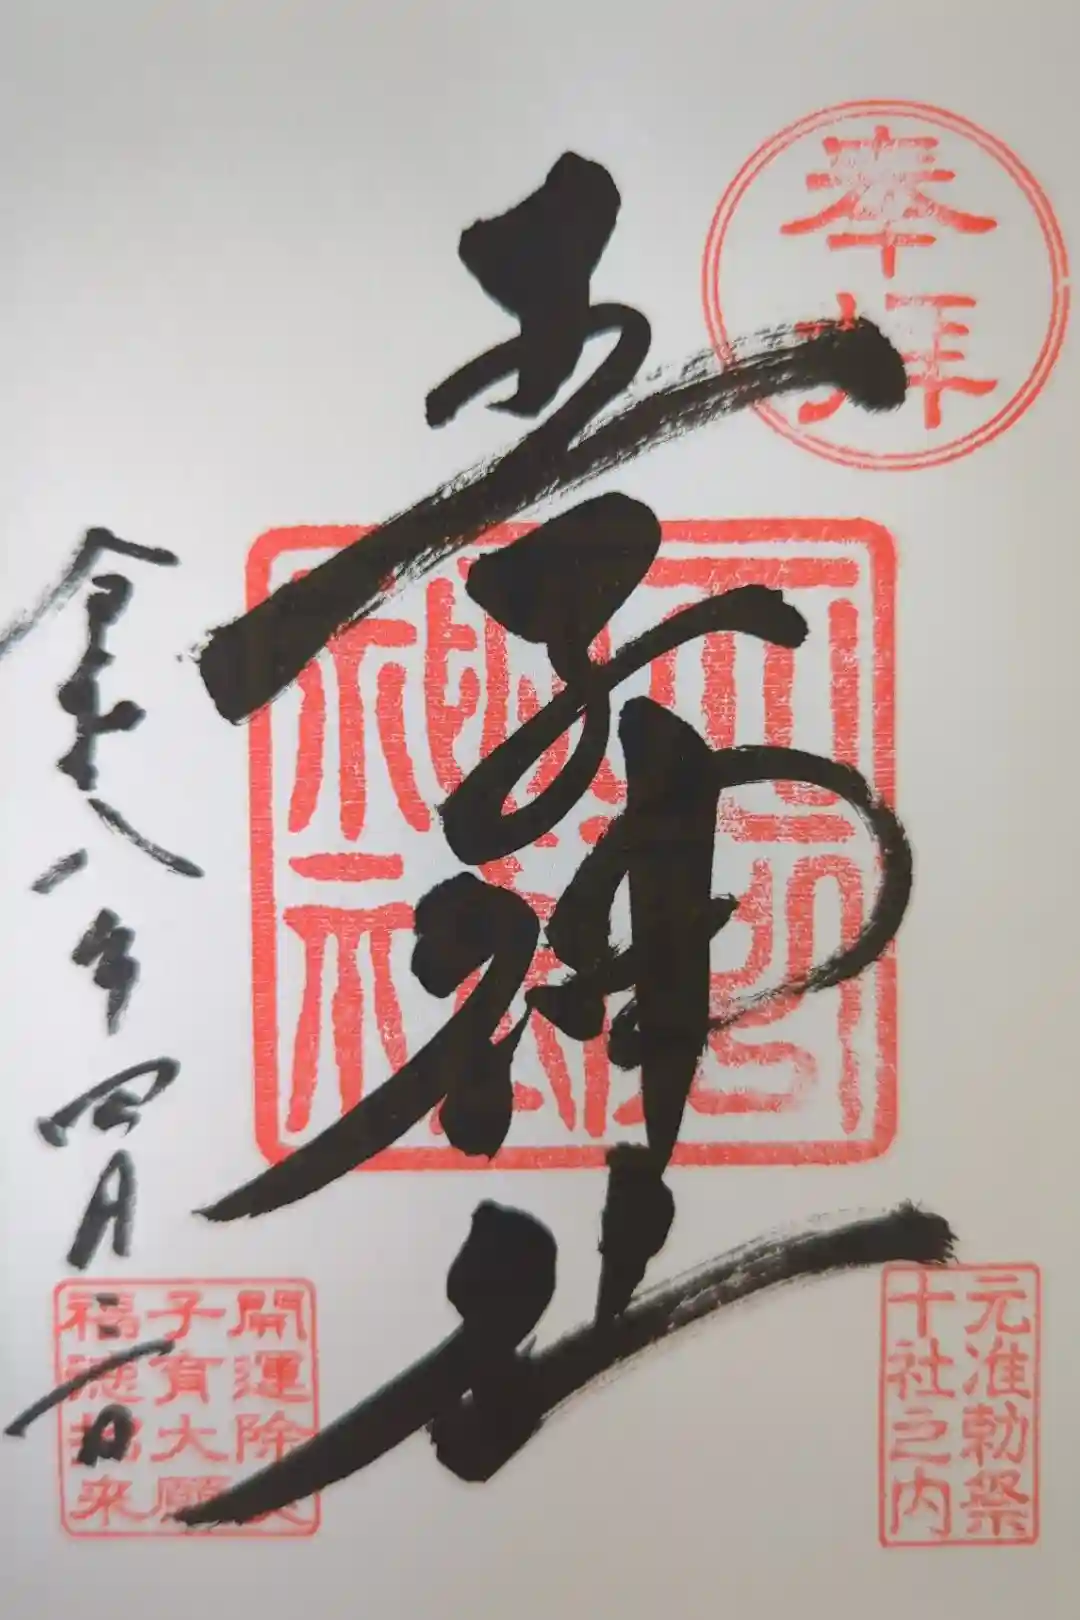 奉拝
王子神社
元准勅祭
十社之内
令和八年四月二日
開運除
子有大願
福徳招来